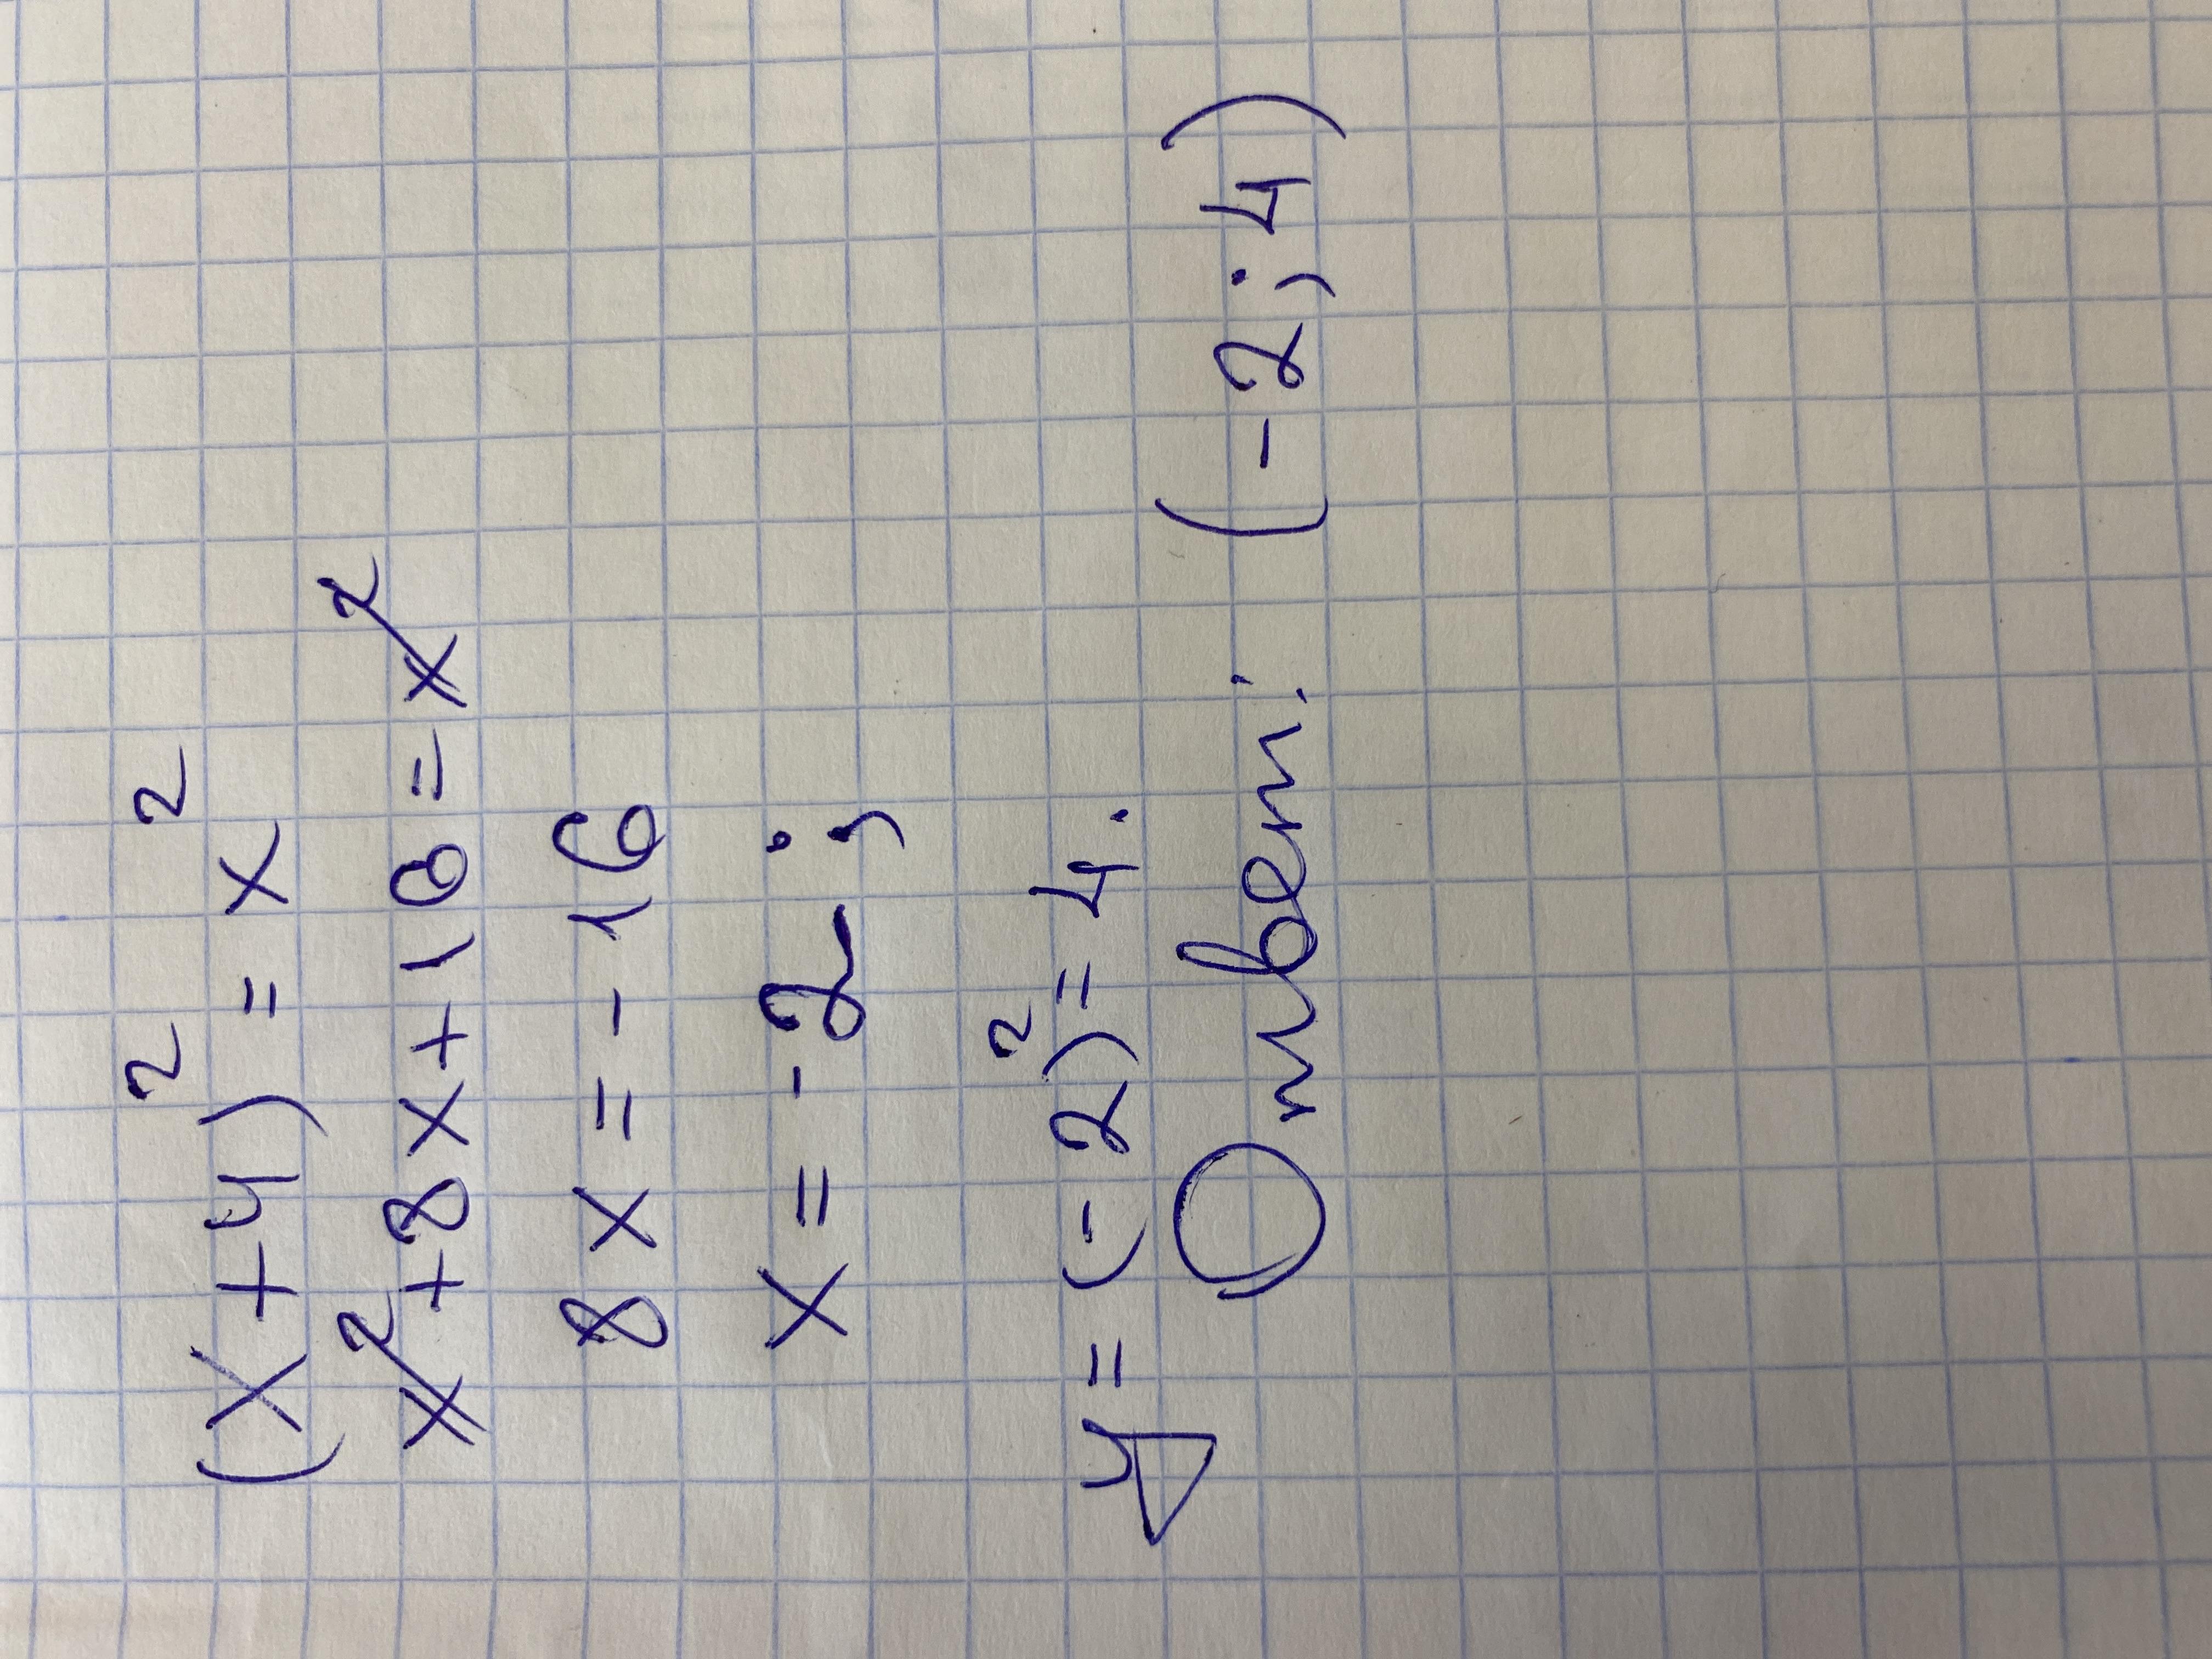 (x+4)² = x²
x²+8x+16=x²
8x=-16
x=-2;
y=(-2)²=4.
Ответ: (-2;4)